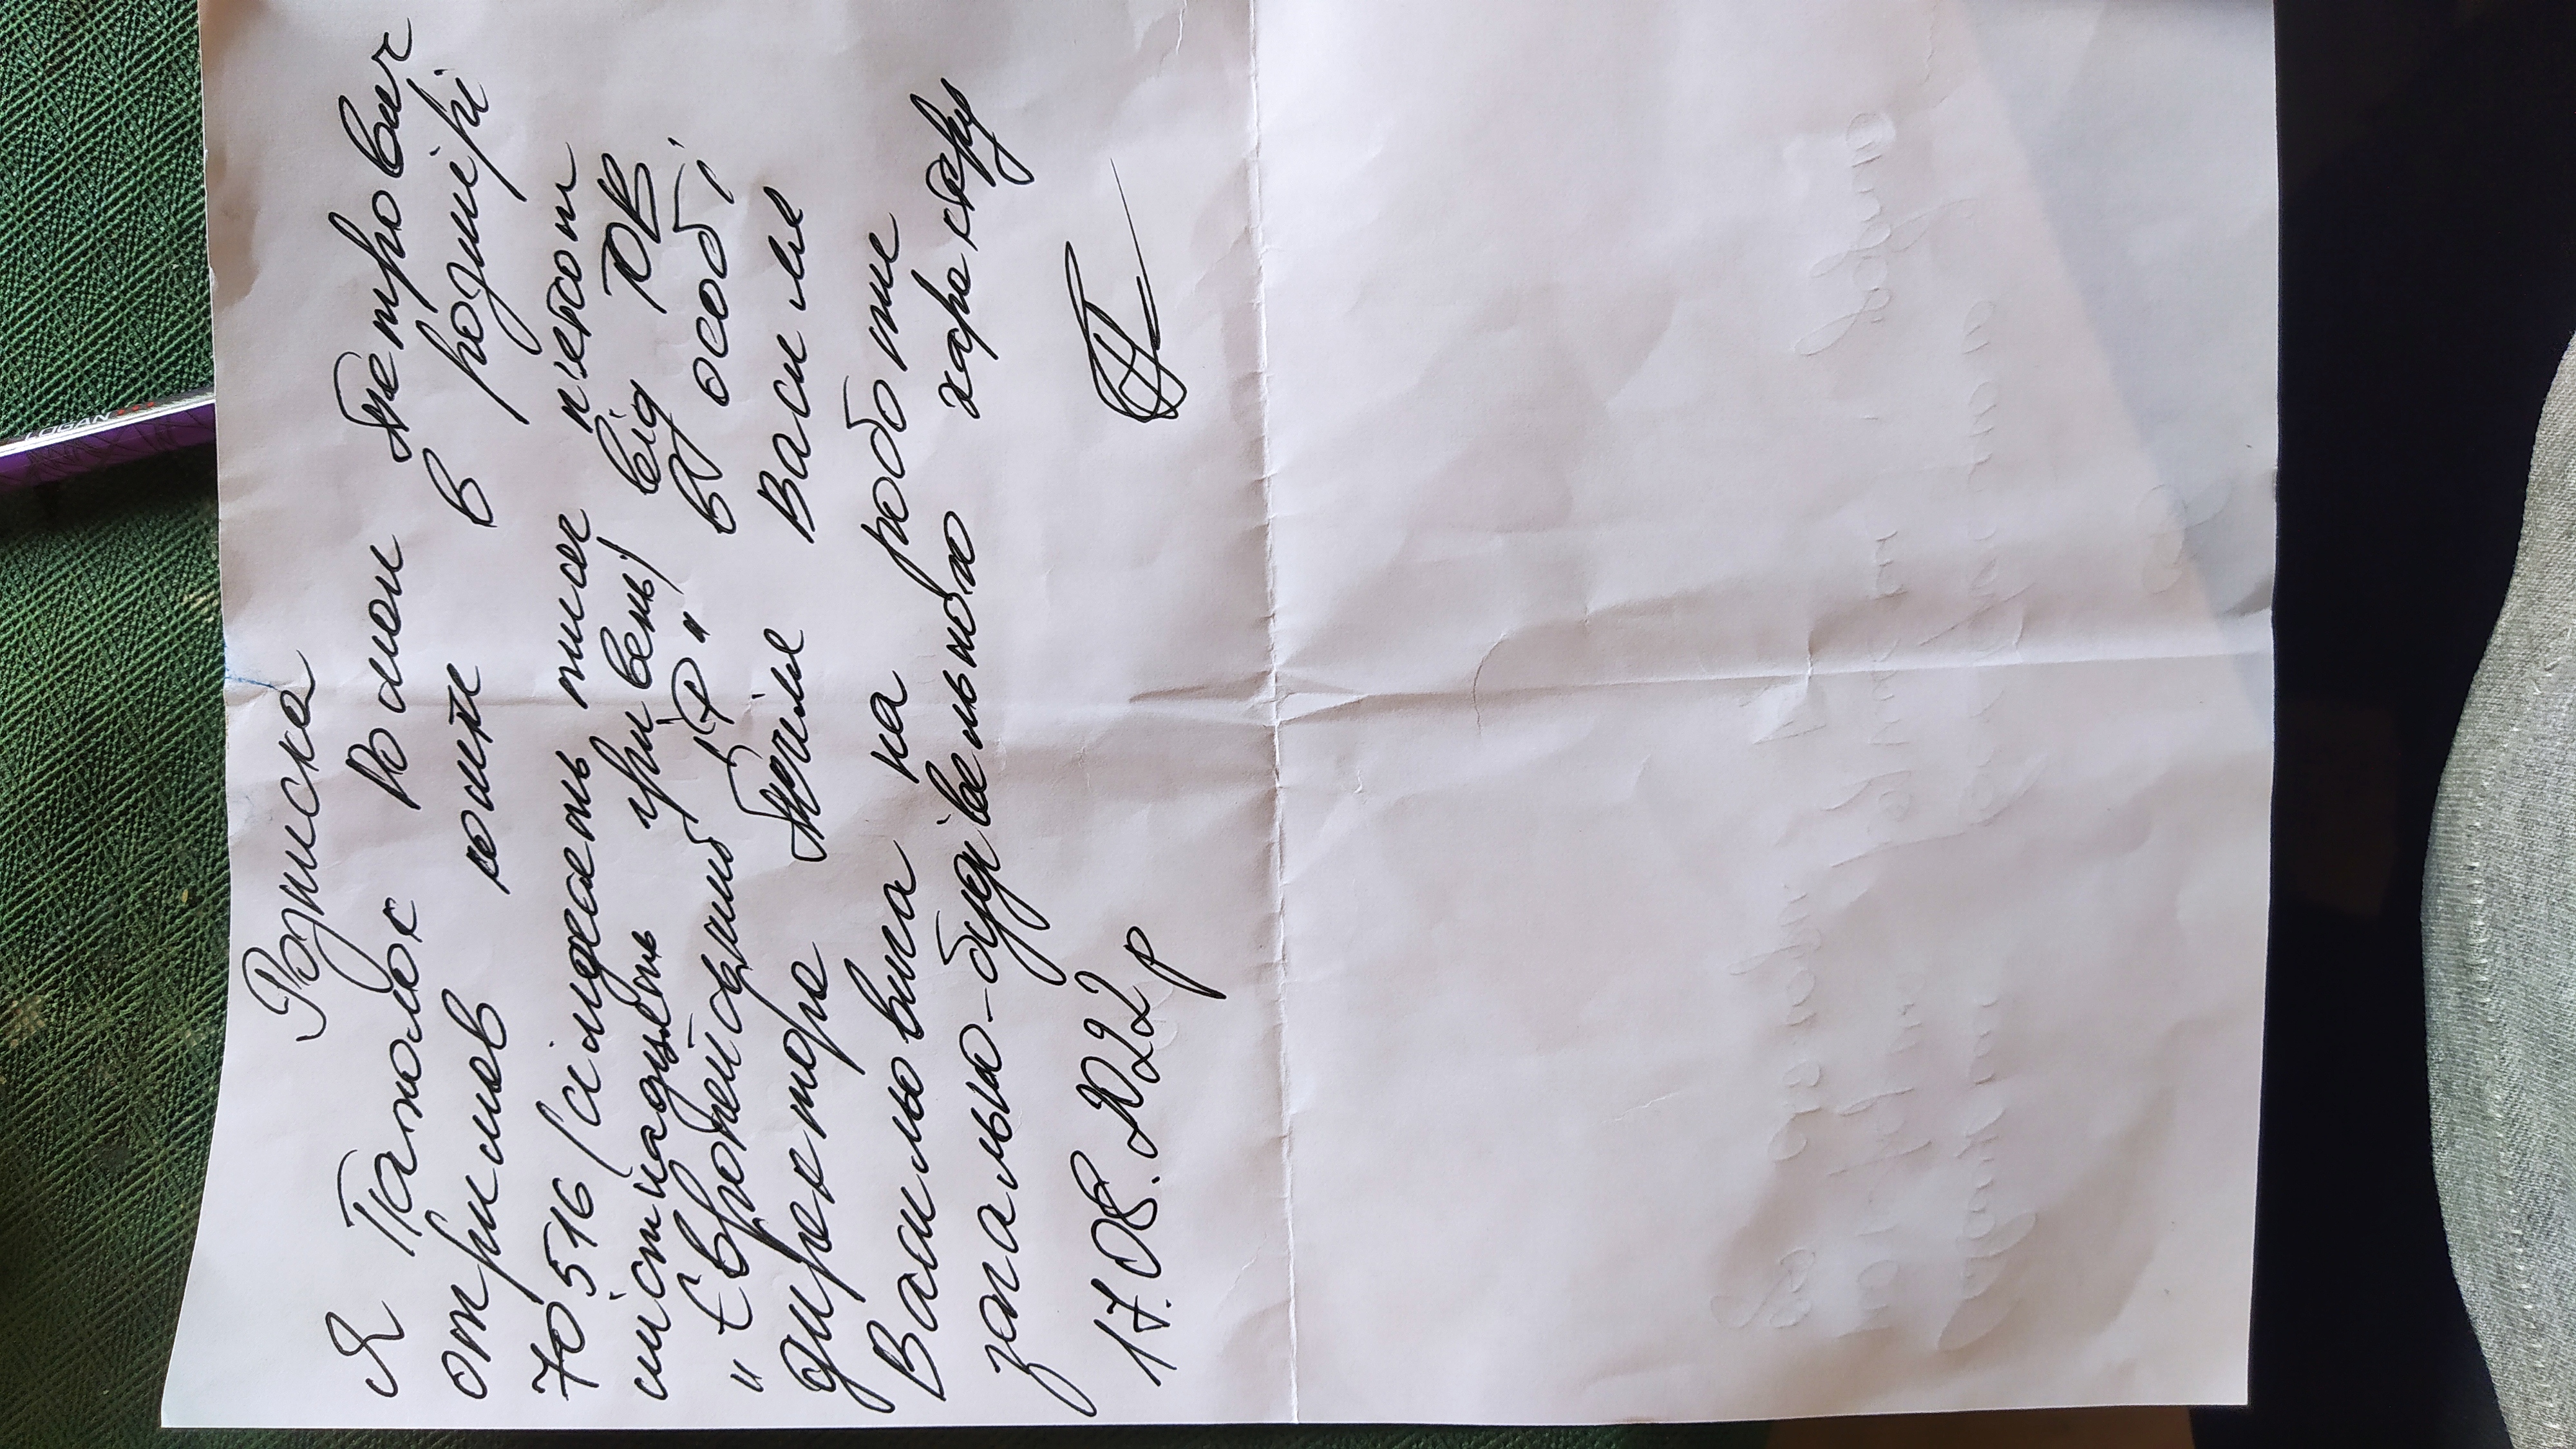 Розписка
Я Пахолок Роман Петрович
отримав кошти в розмірі
70516 (сімдесять тисяч п'ятсот
шістнадцять гривень) від ТОВ
„Європейський ІР" в особі
директора Василя
Васильовича на роботи
загально-будівельного характеру
17.08.2022р
LOGAN